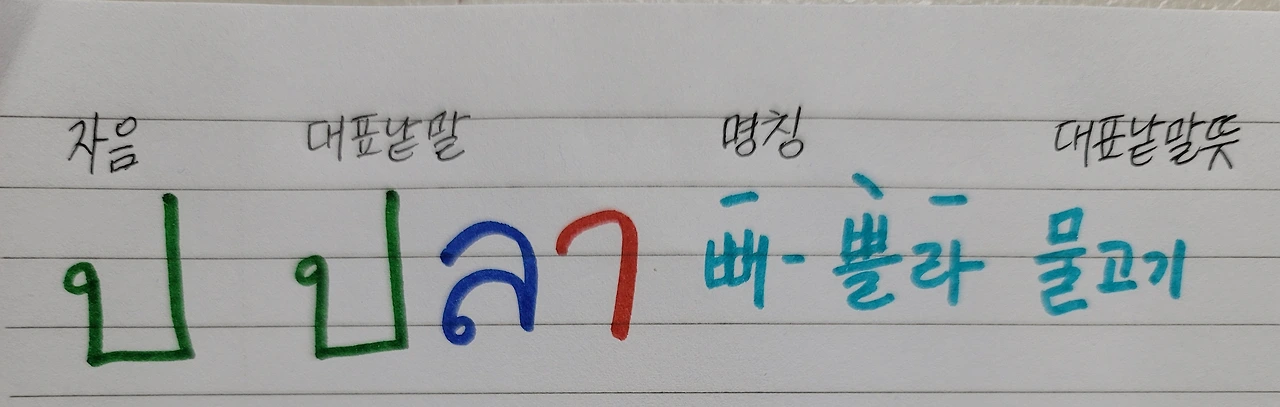 자음 대표낱말 명칭 대표낱말뜻
ป ปลา 뻐- 쁠라 물고기